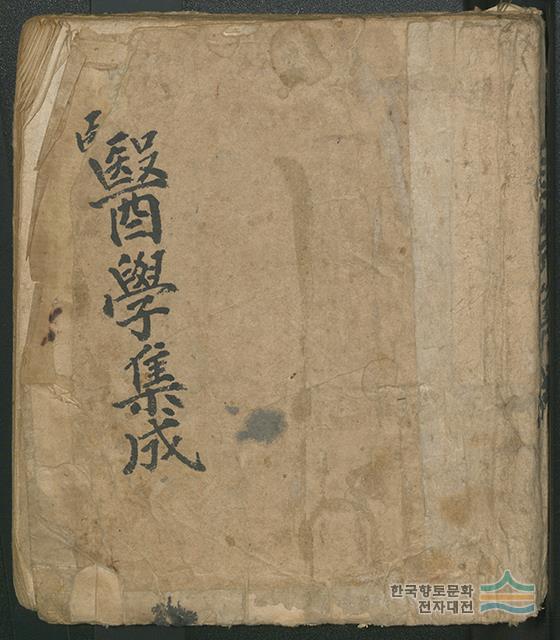 醫學集成
한국향토문화
전자대전